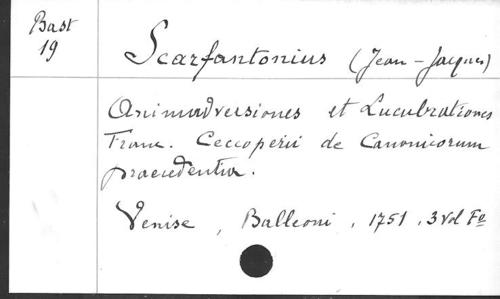 Bast
19
Scarfantonius (Jean-Jacques)
Animadversiones et Lucubrationes
Franc. Ceccoperii de Canonicorum
praecedentia.
Venise, Balleoni, 1751, 3 vol Fº